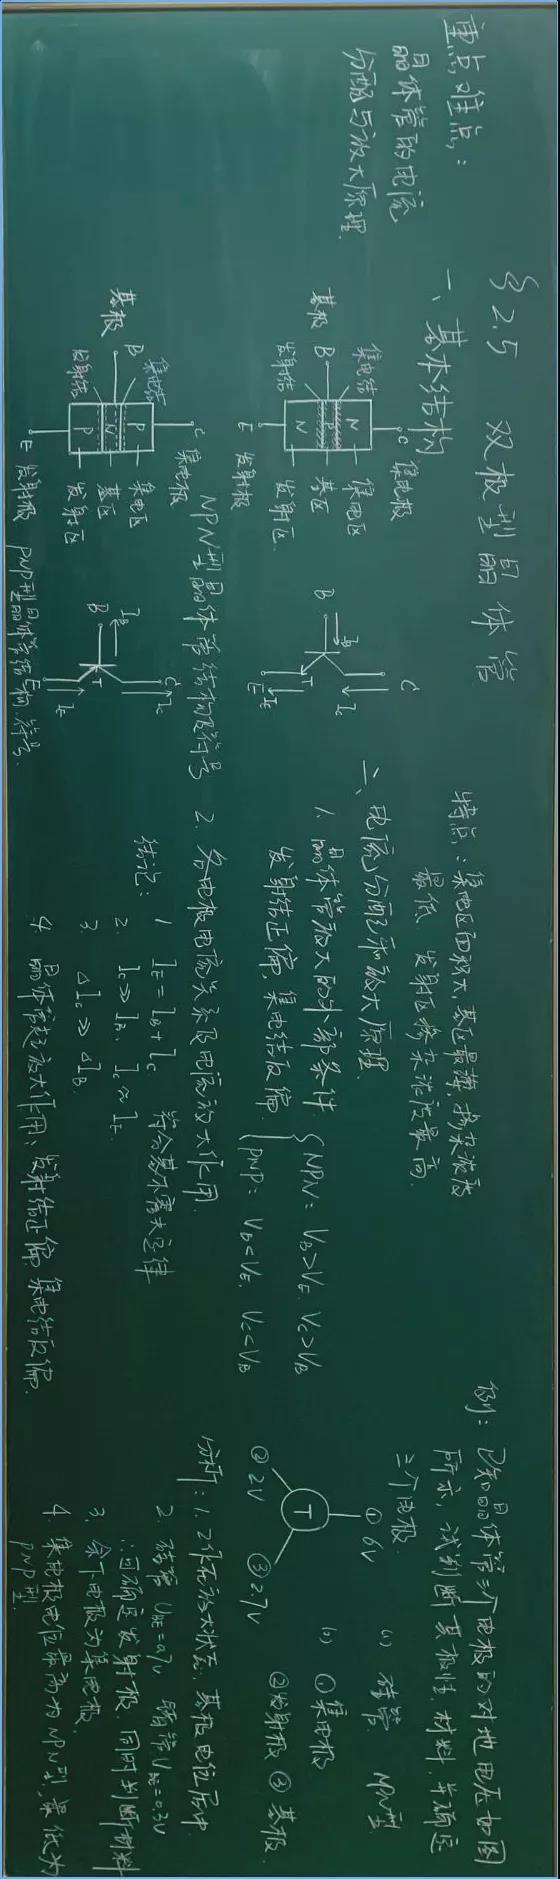 重点,难点:
晶体管的电流
分配与放大原理.
§2.5 双极型晶体管
一、基本结构
集电结
B
基极
发射结
N
P
N
C 集电极
集电区
基区
发射区
E 发射极
B
IB
C
IC
T
E
IE
NPN型晶体管结构及符号
集电结
B
基极
发射结
P
N
P
C 集电极
集电区
基区
发射区
E 发射极
B
IB
C
IC
T
IE
PNP型晶体管结构.符号.
特点:集电区面积大,基区最薄,掺杂浓度
最低 发射区掺杂浓度最高.
二、电流分配和放大原理.
1. 晶体管放大的外部条件
发射结正偏,集电结反偏.
NPN: VB>VE. VC>VB
PNP: VB<VE. VC<VB
2. 各电极电流关系及电流放大作用.
结论: 1. IE=IB+IC 符合基尔霍夫定律
2. IC≫IB. IC≈IE.
3. ΔIC≫ΔIB.
4. 晶体管起放大作用、发射结正偏.集电结反偏.
例:已知晶体管三个电极的对地电压如图
所示,试判断其极性.材料.并确定
三个电极.
①6V
T
②2V
③2.7V
(1) 硅管 NPN型
(2) ①集电极
②发射极 ③基极.
分析:1. 工作在放大状态.基极电位居中.
2. 硅管UBE=0.7V 锗管UBE=0.3V
∴可确定发射极.同时判断材料
3. 余下电极为集电极
4. 集电极电位最高为NPN型,最低为
PNP型.